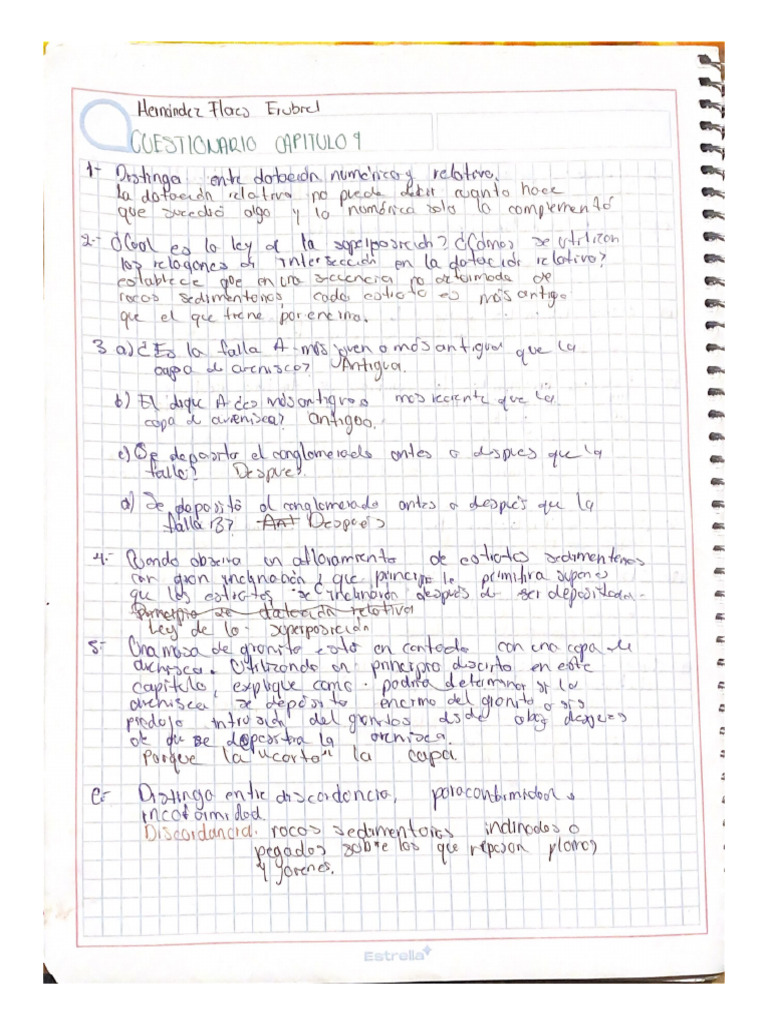 Hernández Flores Erubiel
CUESTIONARIO CAPITULO 9
1- Distinga entre datación numérica y relativa.
La datación relativa no puede decir cuanto hace
que sucedió algo y la numérica solo la complementó
2.- ¿Cual es la ley de la superposición? ¿Cómo se utilizan
las relaciones de intersección en la datación relativa?
establece que en una secuencia no deformada de
rocas sedimentarias, cada estrato es más antigo
que el que tiene por encima.
3 a) ¿Es la falla A más joven o más antigua que la
capa de arenisca? Antigua.
b) El dique A ¿es más antiguo o mas reciente que la
capa de arenisca? antigoo.
c) Se deposito el conglomerado antes o despues que la
falla? Despues.
d) Se depositó el conglomerado antes o después que la
falla B? Ant Después
4.- Cuando observa un afloramiento de estratos sedimentarios
con gran inclinación ¿que principio le
que los estratos se inclinaron después de ser depositados.
Principio de datación relativa
Ley de la superposición
5- Una masa de granito está en contacto con una capa de
arenisca. Utilizando un principio descrito en este
capítulo, explique como podría determinar si la
arenisca se depósito encima del granito o si
intrusión del granito desde
de que se depositra la arenisca.
Porque la "corto" la capa.
6- Distinga entre discordancia, paraconformidad e
incoformidad.
Discordancia. rocas sedimentarias inclinadas o
pegadas sobre las que reposan planas
y jovenes.
Estrella